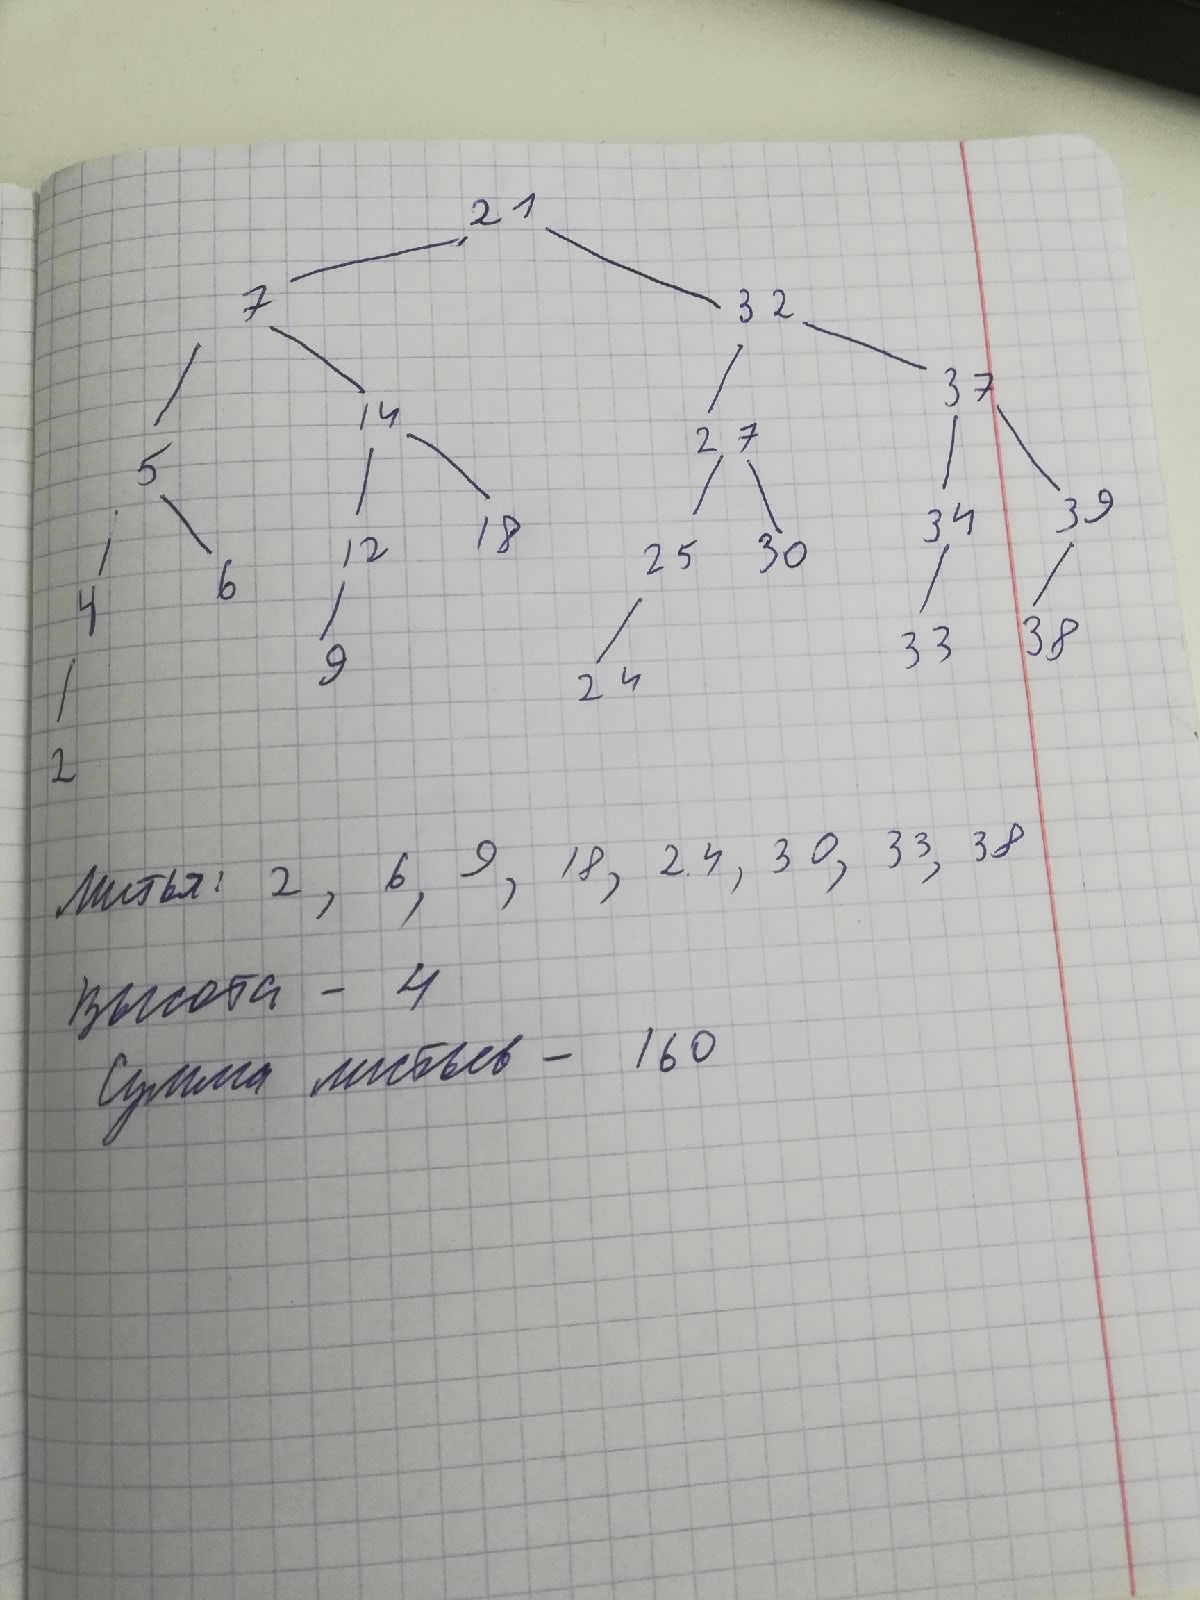 21
7 32
14 37
5 27
12 18 25 30 34 39
4 6
9 24 33 38
2
Листья: 2, 6, 9, 18, 24, 30, 33, 38
Высота - 4
Сумма листьев - 160